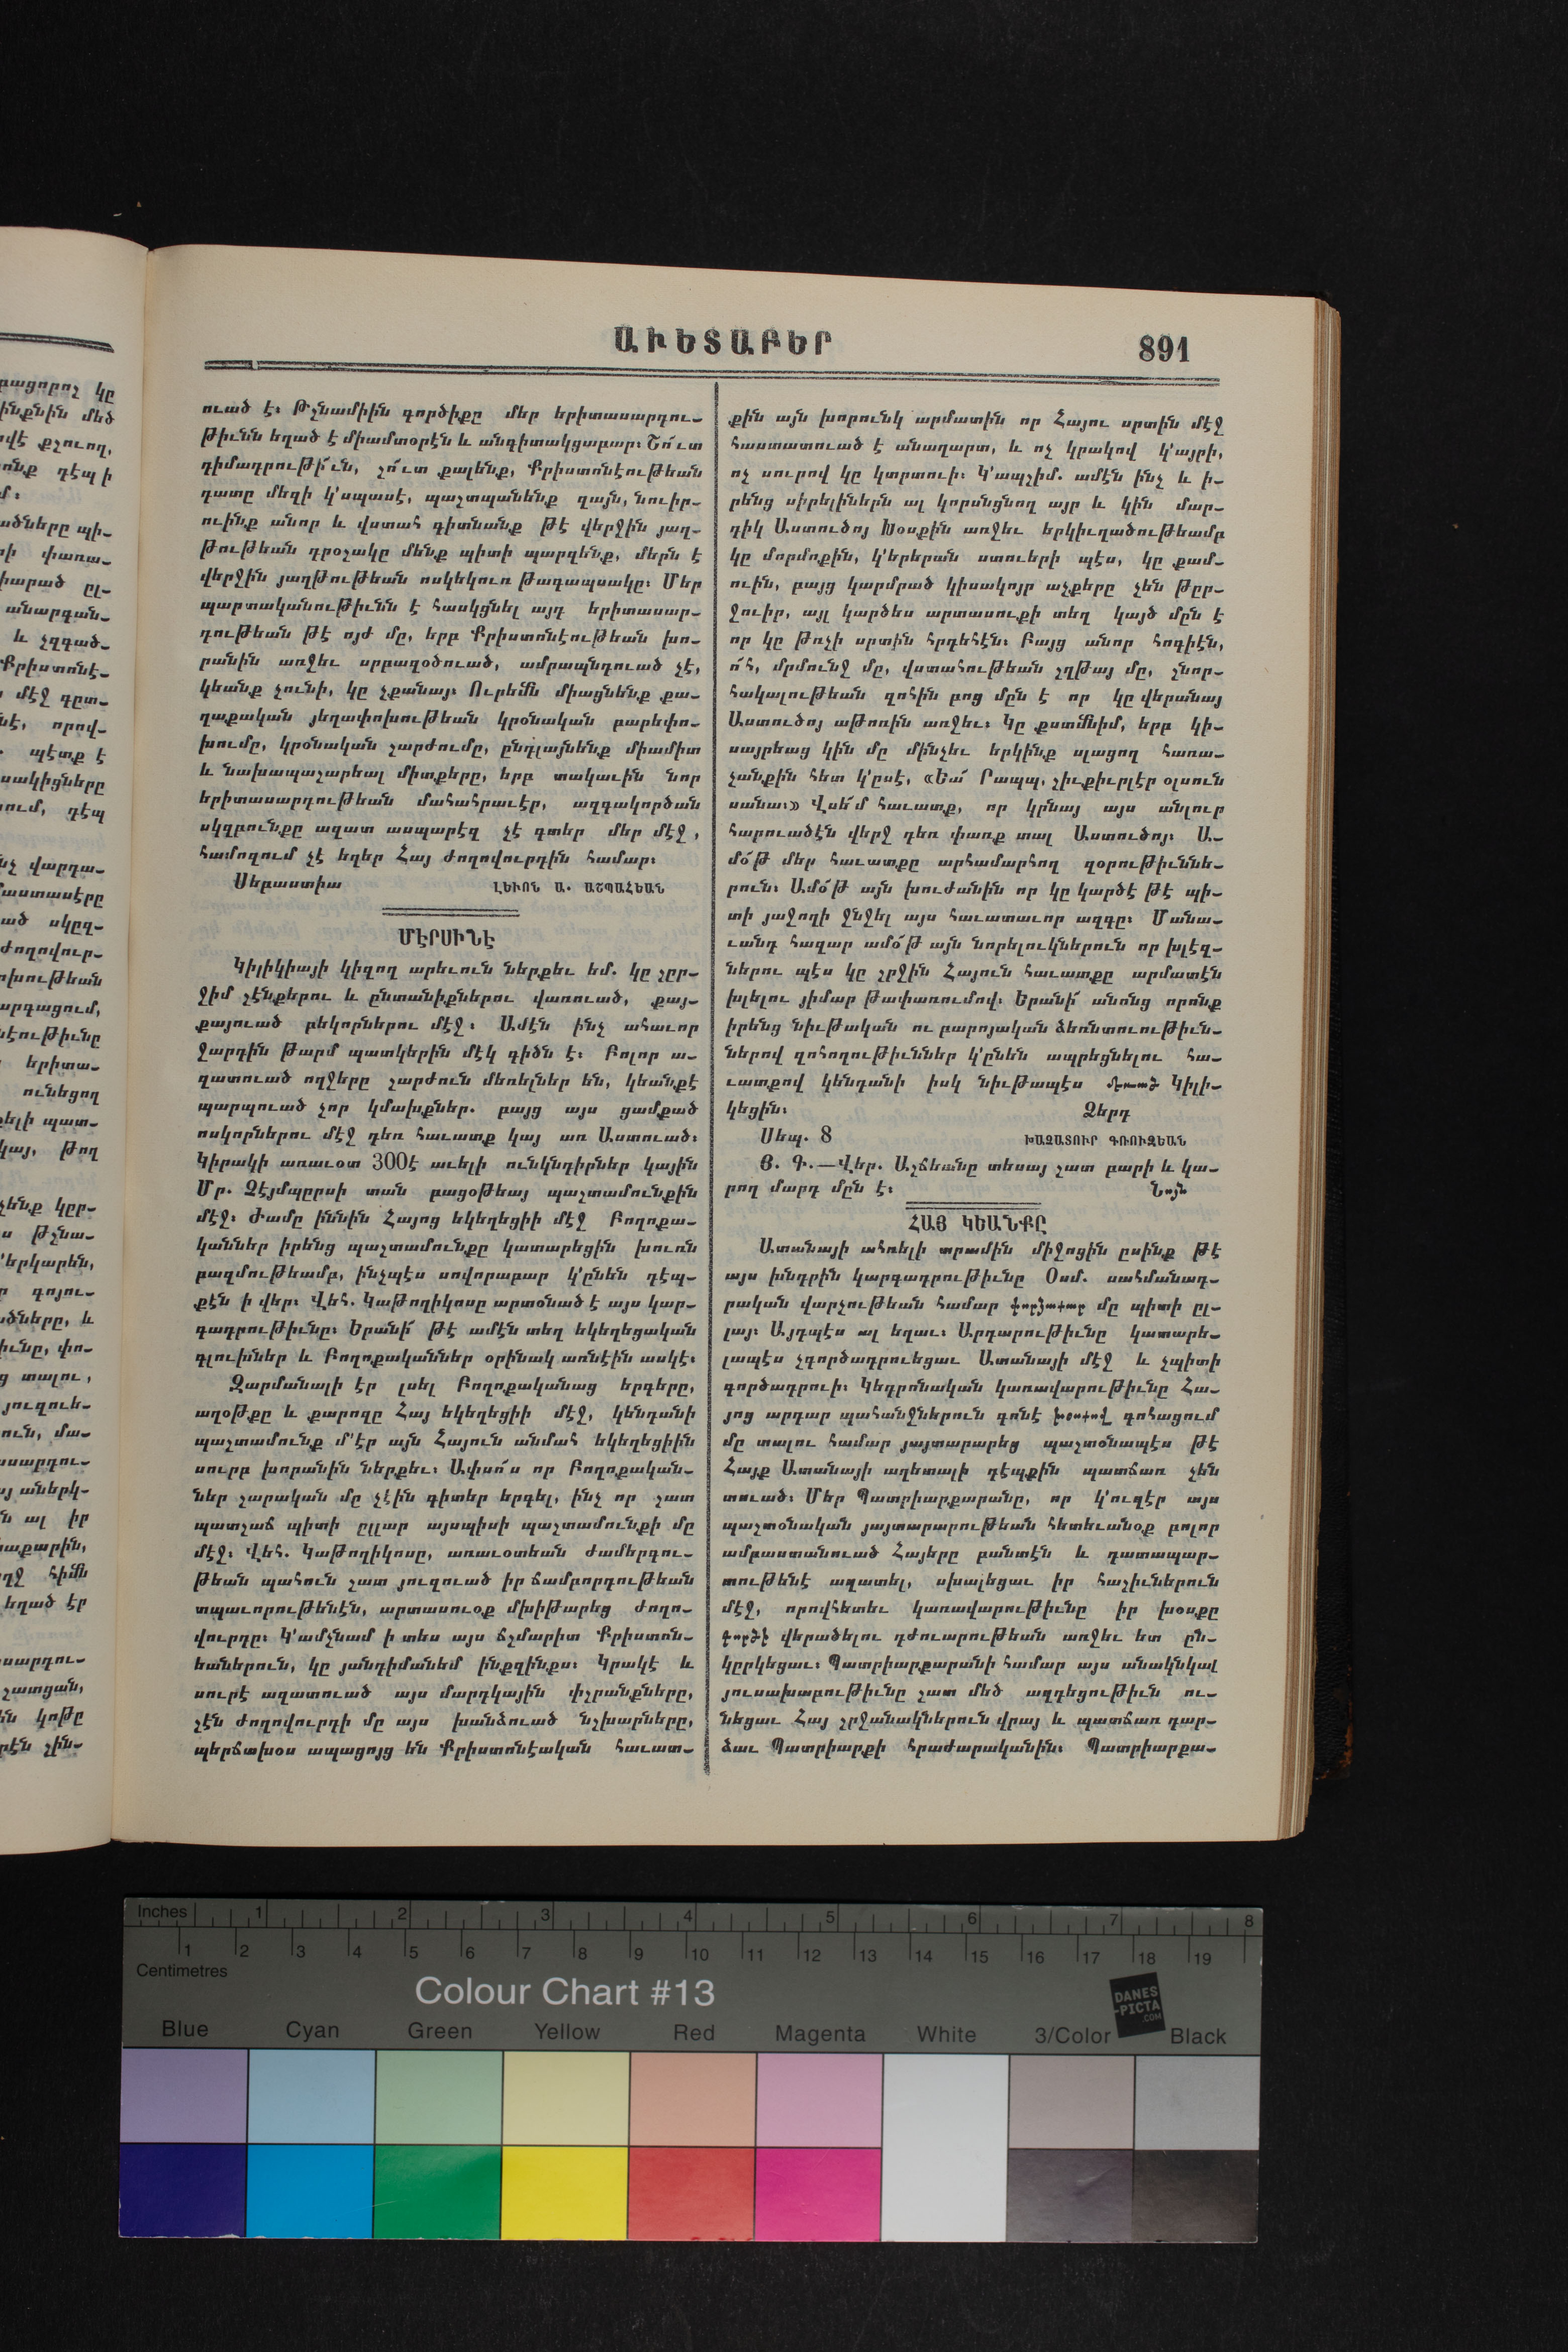 ԱՒԵՏԱԲԵՐ
891
ուած է։ Թշնամիին գործիքը մեր երիտասարդու-
թիւնն եղած է միամտօրէն և անգիտակցաբար։ Շո՛ւտ
դիմադրութի՛ւն, շո՛ւտ քալենք, Քրիստոնէութեան
դատը մեզի կ՚սպասէ, պաշտպանենք զայն, նուիր-
ուինք անոր և վստահ գիտնանք թէ վերջին յաղ-
թութեան դրօշակը մենք պիտի պարզենք, մերն է
վերջին յաղթութեան ոսկեկուռ թագապսակը։ Մեր
պարտականութիւնն է հասկցնել այդ երիտասար-
դութեան թէ ոյժ մը, երբ Քրիստոնէութեան խո-
րանին առջեւ սրբազօծուած, ամրապնդուած չէ,
կեանք չունի, կը չքանայ։ Ուրեմն միացնենք քա-
ղաքական յեղափոխութեան կրօնական բարեփո-
խումը, կրօնական շարժումը, ընդլայնենք միամիտ
և նախապաշարեալ միտքերը, երբ տակաւին նոր
երիտասարդութեան մահահրաւէր, ազգակործան
սկզբունքը ազատ ասպարէզ չէ գտեր մեր մէջ,
համոզում չէ եղեր Հայ ժողովուրդին համար։
Սեբաստիա ԼԵՒՈՆ Ա. ԱՇՊԱՀԵԱՆ
ՄԷՐՍԻՆԷ
Կիլիկիայի կիզող արեւուն ներքեւ եմ. կը շըր-
ջիմ շէնքերու և ընտանիքներու վառուած, քայ-
քայուած բեկորներու մէջ։ Ամէն ինչ ահաւոր
ջարդին թարմ պատկերին մէկ գիծն է։ Բոլոր ա-
զատուած ողջերը շարժուն մեռելներ են, կեանքէ
պարպուած չոր կմախքներ. բայց այս ցամքած
ոսկորներու մէջ դեռ հաւատք կայ առ Աստուած։
Կիրակի առաւօտ 300է աւելի ունկնդիրներ կային
Մր. Չէյմպըրսի տան բացօթեայ պաշտամունքին
մէջ։ Ժամը իննին Հայոց եկեղեցիի մէջ Բողոքա-
կաններ իրենց պաշտամունքը կատարեցին խուռն
բազմութեամբ, ինչպէս սովորաբար կ՚ընեն դէպ-
քէն ի վեր։ Վեհ. Կաթողիկոսը արտօնած է այս կար-
գադրութիւնը։ Երանի՜ թէ ամէն տեղ եկեղեցական
գլուխներ և Բողոքականներ օրինակ առնէին ասկէ։
Զարմանալի էր լսել Բողոքականաց երգերը,
աղօթքը և քարոզը Հայ եկեղեցիի մէջ, կենդանի
պաշտամունք մ՚էր այն Հայուն անմահ եկեղեցիին
սուրբ խորանին ներքեւ։ Ափսո՜ս որ Բողոքական-
ներ շարական մը չէին գիտեր երգել, ինչ որ շատ
պատշաճ պիտի ըլլար այսպիսի պաշտամունքի մը
մէջ։ Վեհ. Կաթողիկոսը, առաւօտեան ժամերգու-
թեան պահուն շատ յուզուած իր ճամբորդութեան
տպաւորութենէն, արտասուօք մխիթարեց ժողո-
վուրդը։ Կ՚ամչնամ ի տես այս ճշմարիտ Քրիստոն-
եաներուն, կը յանդիմանեմ ինքզինքս։ Կրակէ և
սուրէ ազատուած այս մարդկային փշրանքները,
չէն ժողովուրդի մը այս խանձուած նշխարները,
պերճախօս ապացոյց են Քրիստոնէական հաւատ-
քին այն խորունկ արմատին որ Հայու սրտին մէջ
հաստատուած է անաղարտ, և ոչ կրակով կ՚այրի,
ոչ սուրով կը կտրտուի։ Կ՚ապշիմ. ամէն ինչ և ի-
րենց սիրելիներն ալ կորսնցնող այր և կին մար-
դիկ Աստուծոյ Խօսքին առջեւ երկիւղածութեամբ
կը մորմոքին, կ՚երերան ստուերի պէս, կը քամ-
ուին, բայց կարմրած կիսակոյր աչքերը չեն թըր-
ջուիր, այլ կարծես արտասուքի տեղ կայծ մըն է
որ կը թռչի սրտին հրդեհէն։ Բայց անոր հոգիէն,
ո՛հ, մրմունջ մը, վստահութեան շղթայ մը, շնոր-
հակալութեան զոհին բոց մըն է որ կը վերանայ
Աստուծոյ աթոռին առջեւ։ Կը քստմնիմ, երբ կի-
սայրեաց կին մը մինչեւ երկինք սլացող հառա-
չանքին հետ կ՚ըսէ, «Եա՜ Րապպ, շիւքիւրլէր օլսուն
սանա։» Վսե՜մ հաւատք, որ կրնայ այս անլուր
հարուածէն վերջ դեռ փառք տալ Աստուծոյ։ Ա-
մօ՛թ մեր հաւատքը արհամարհող զօրութիւննե-
րուն։ Ամօ՛թ այն խուժանին որ կը կարծէ թէ պի-
տի յաջողի ջնջել այս հաւատաւոր ազգը։ Մանա-
ւանդ հազար ամօ՛թ այն նորելուկներուն որ խլէզ-
ներու պէս կը շրջին Հայուն հաւատքը արմատէն
խլելու յիմար թափառումով։ Երանի՜ անոնց որոնք
իրենց նիւթական ու բարոյական ձեռնտուութիւն-
ներով զոհողութիւններ կ՚ընեն ապրեցնելու հա-
ւատքով կենդանի իսկ նիւթապէս մեռած Կիլի-
կեցին։ Ձերդ
Սեպ. 8 ԽԱՉԱՏՈՒՐ ԳՌՈՒԶԵԱՆ
Յ. Գ.—Վեր. Աշճեանը տեսայ շատ բարի և կա-
րող մարդ մըն է։ Նոյն
ՀԱՅ ԿԵԱՆՔԸ
Ատանայի ահռելի տրամին միջոցին ըսինք թէ
այս խնդրին կարգադրութիւնը Օսմ. սահմանադ-
րական վարչութեան համար փորձաքար մը պիտի ըլ-
լայ։ Այդպէս ալ եղաւ։ Արդարութիւնը կատարե-
լապէս չգործադրուեցաւ Ատանայի մէջ և չպիտի
գործադրուի։ Կեդրոնական կառավարութիւնը Հա-
յոց արդար պահանջներուն գոնէ խօսքով գոհացում
մը տալու համար յայտարարեց պաշտօնապէս թէ
Հայք Ատանայի աղետալի դէպքին պատճառ չեն
տուած։ Մեր Պատրիարքարանը, որ կ՚ուզէր այս
պաշտօնական յայտարարութեան հետեւանօք բոլոր
ամբաստանուած Հայերը բանտէն և դատապար-
տութենէ ազատել, սխալեցաւ իր հաշիւներուն
մէջ, որովհետեւ կառավարութիւնը իր խօսքը
գործի վերածելու դժուարութեան առջեւ ետ ըն-
կըրկեցաւ։ Պատրիարքարանի համար այս անակնկալ
յուսախաբութիւնը շատ մեծ ազդեցութիւն ու-
նեցաւ Հայ շրջանակներուն վրայ և պատճառ դար-
ձաւ Պատրիարքի հրաժարականին։ Պատրիարքա-
Inches 1 2 3 4 5 6 7 8
1 2 3 4 5 6 7 8 9 10 11 12 13 14 15 16 17 18 19
Centimetres
Colour Chart #13
DANES
-PICTA
.COM
Blue Cyan Green Yellow Red Magenta White 3/Color Black